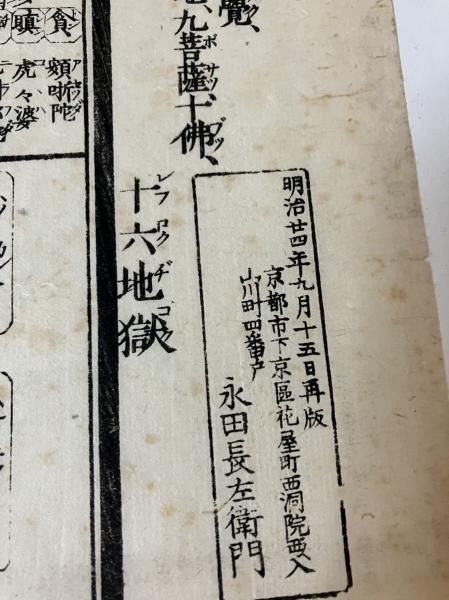 明治廿四年九月十五日再版
京都市下京區花屋町西洞院西入
山川町四番戸
永田長左衛門
覺、
九菩薩十佛、
ボサツ、ブツ
十六地獄
貪
頞哳陀
瞋
虎々婆